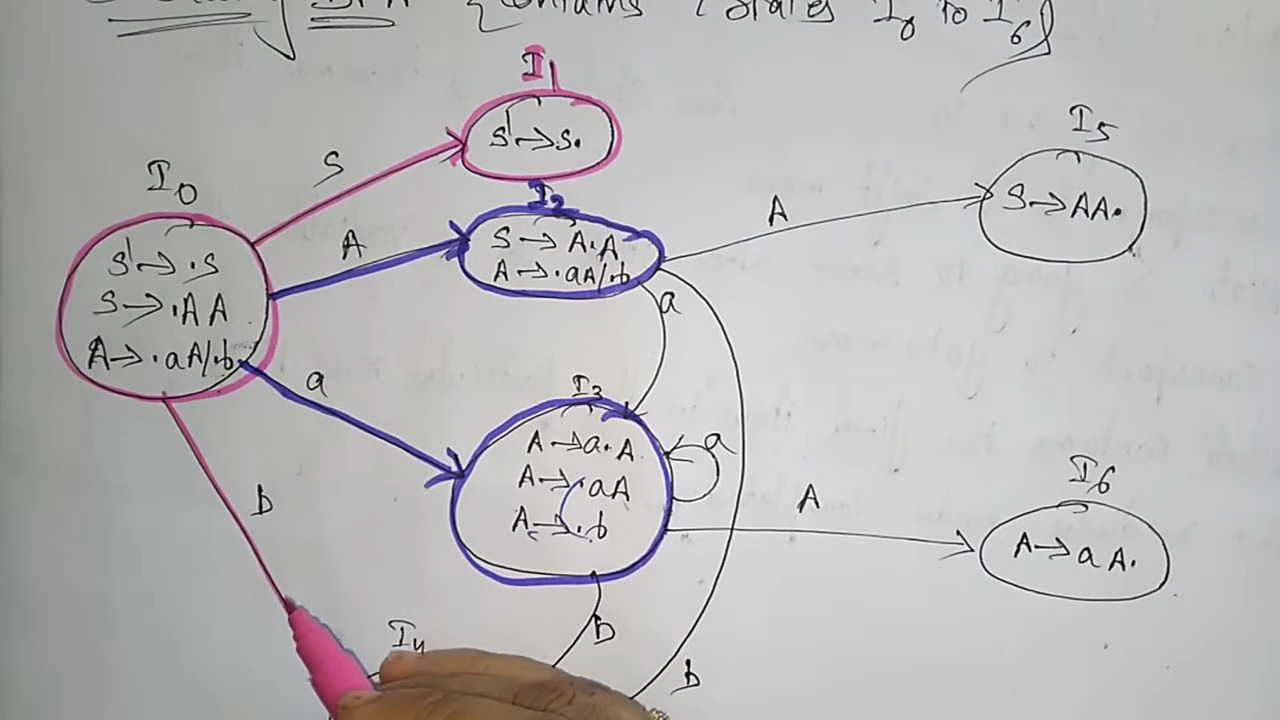 DFA {Contains 7 states I0 to I6}
I1
S' → S.
I0
S' → .S
S → .AA
A → .aA/.b
S
A
a
b
I2
S → A.A
A → .aA/.b
A
a
b
I5
S → AA.
I3
A → a.A
A → .aA
A → .b
a
A
b
I6
A → aA.
I4